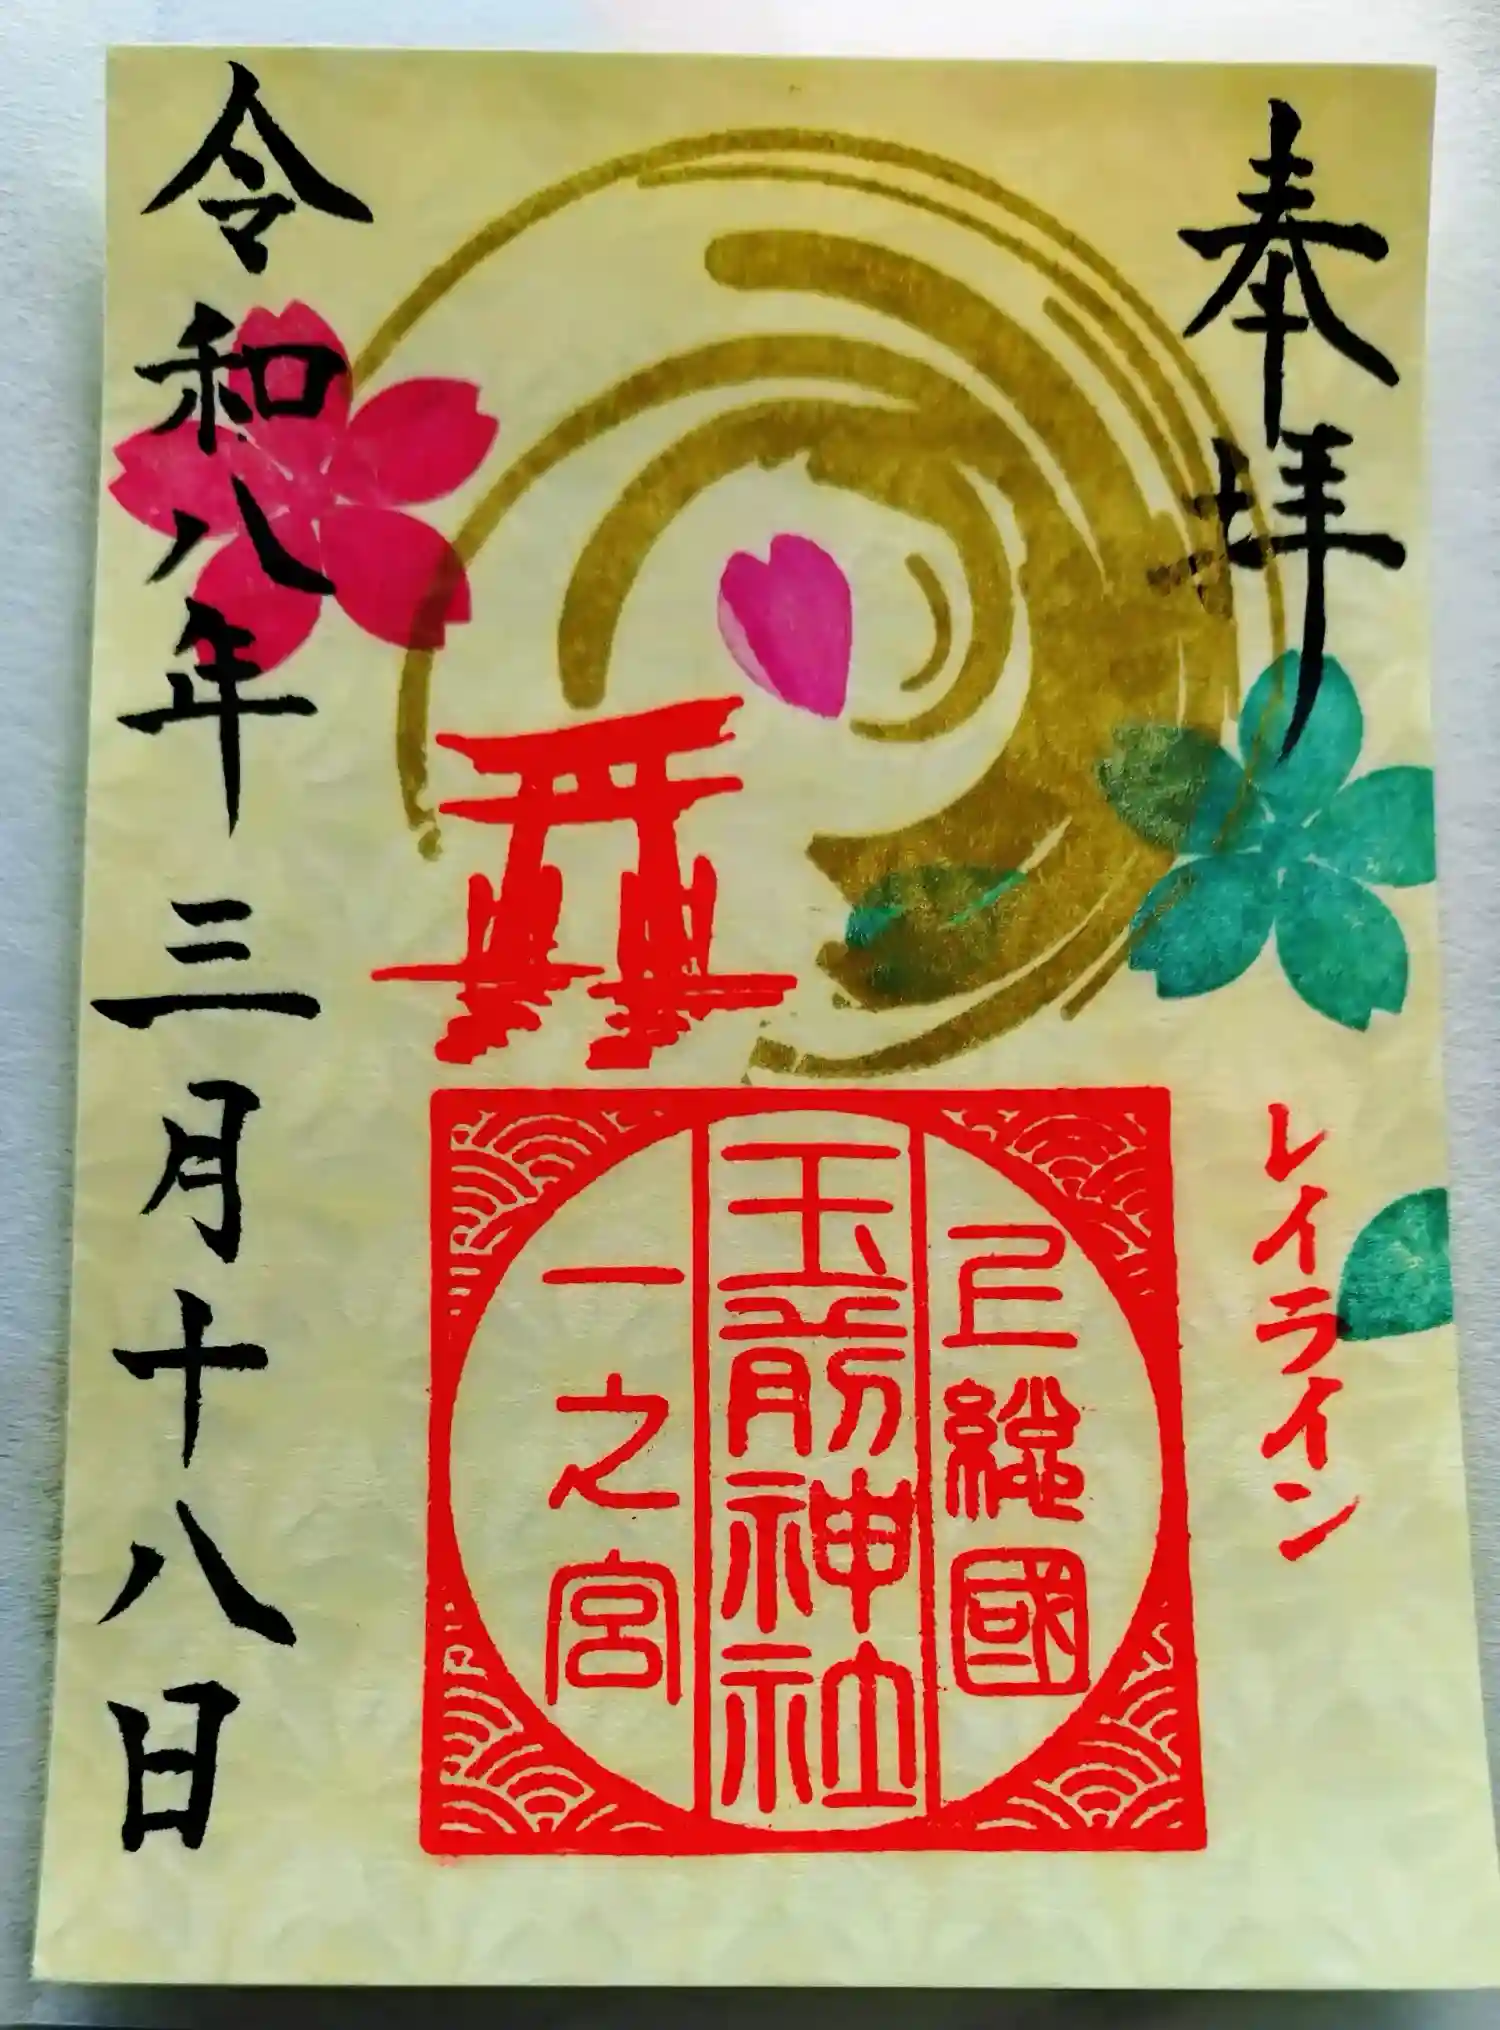 奉拝
レイライン
上總國
玉前神社
一之宮
令和八年三月十八日